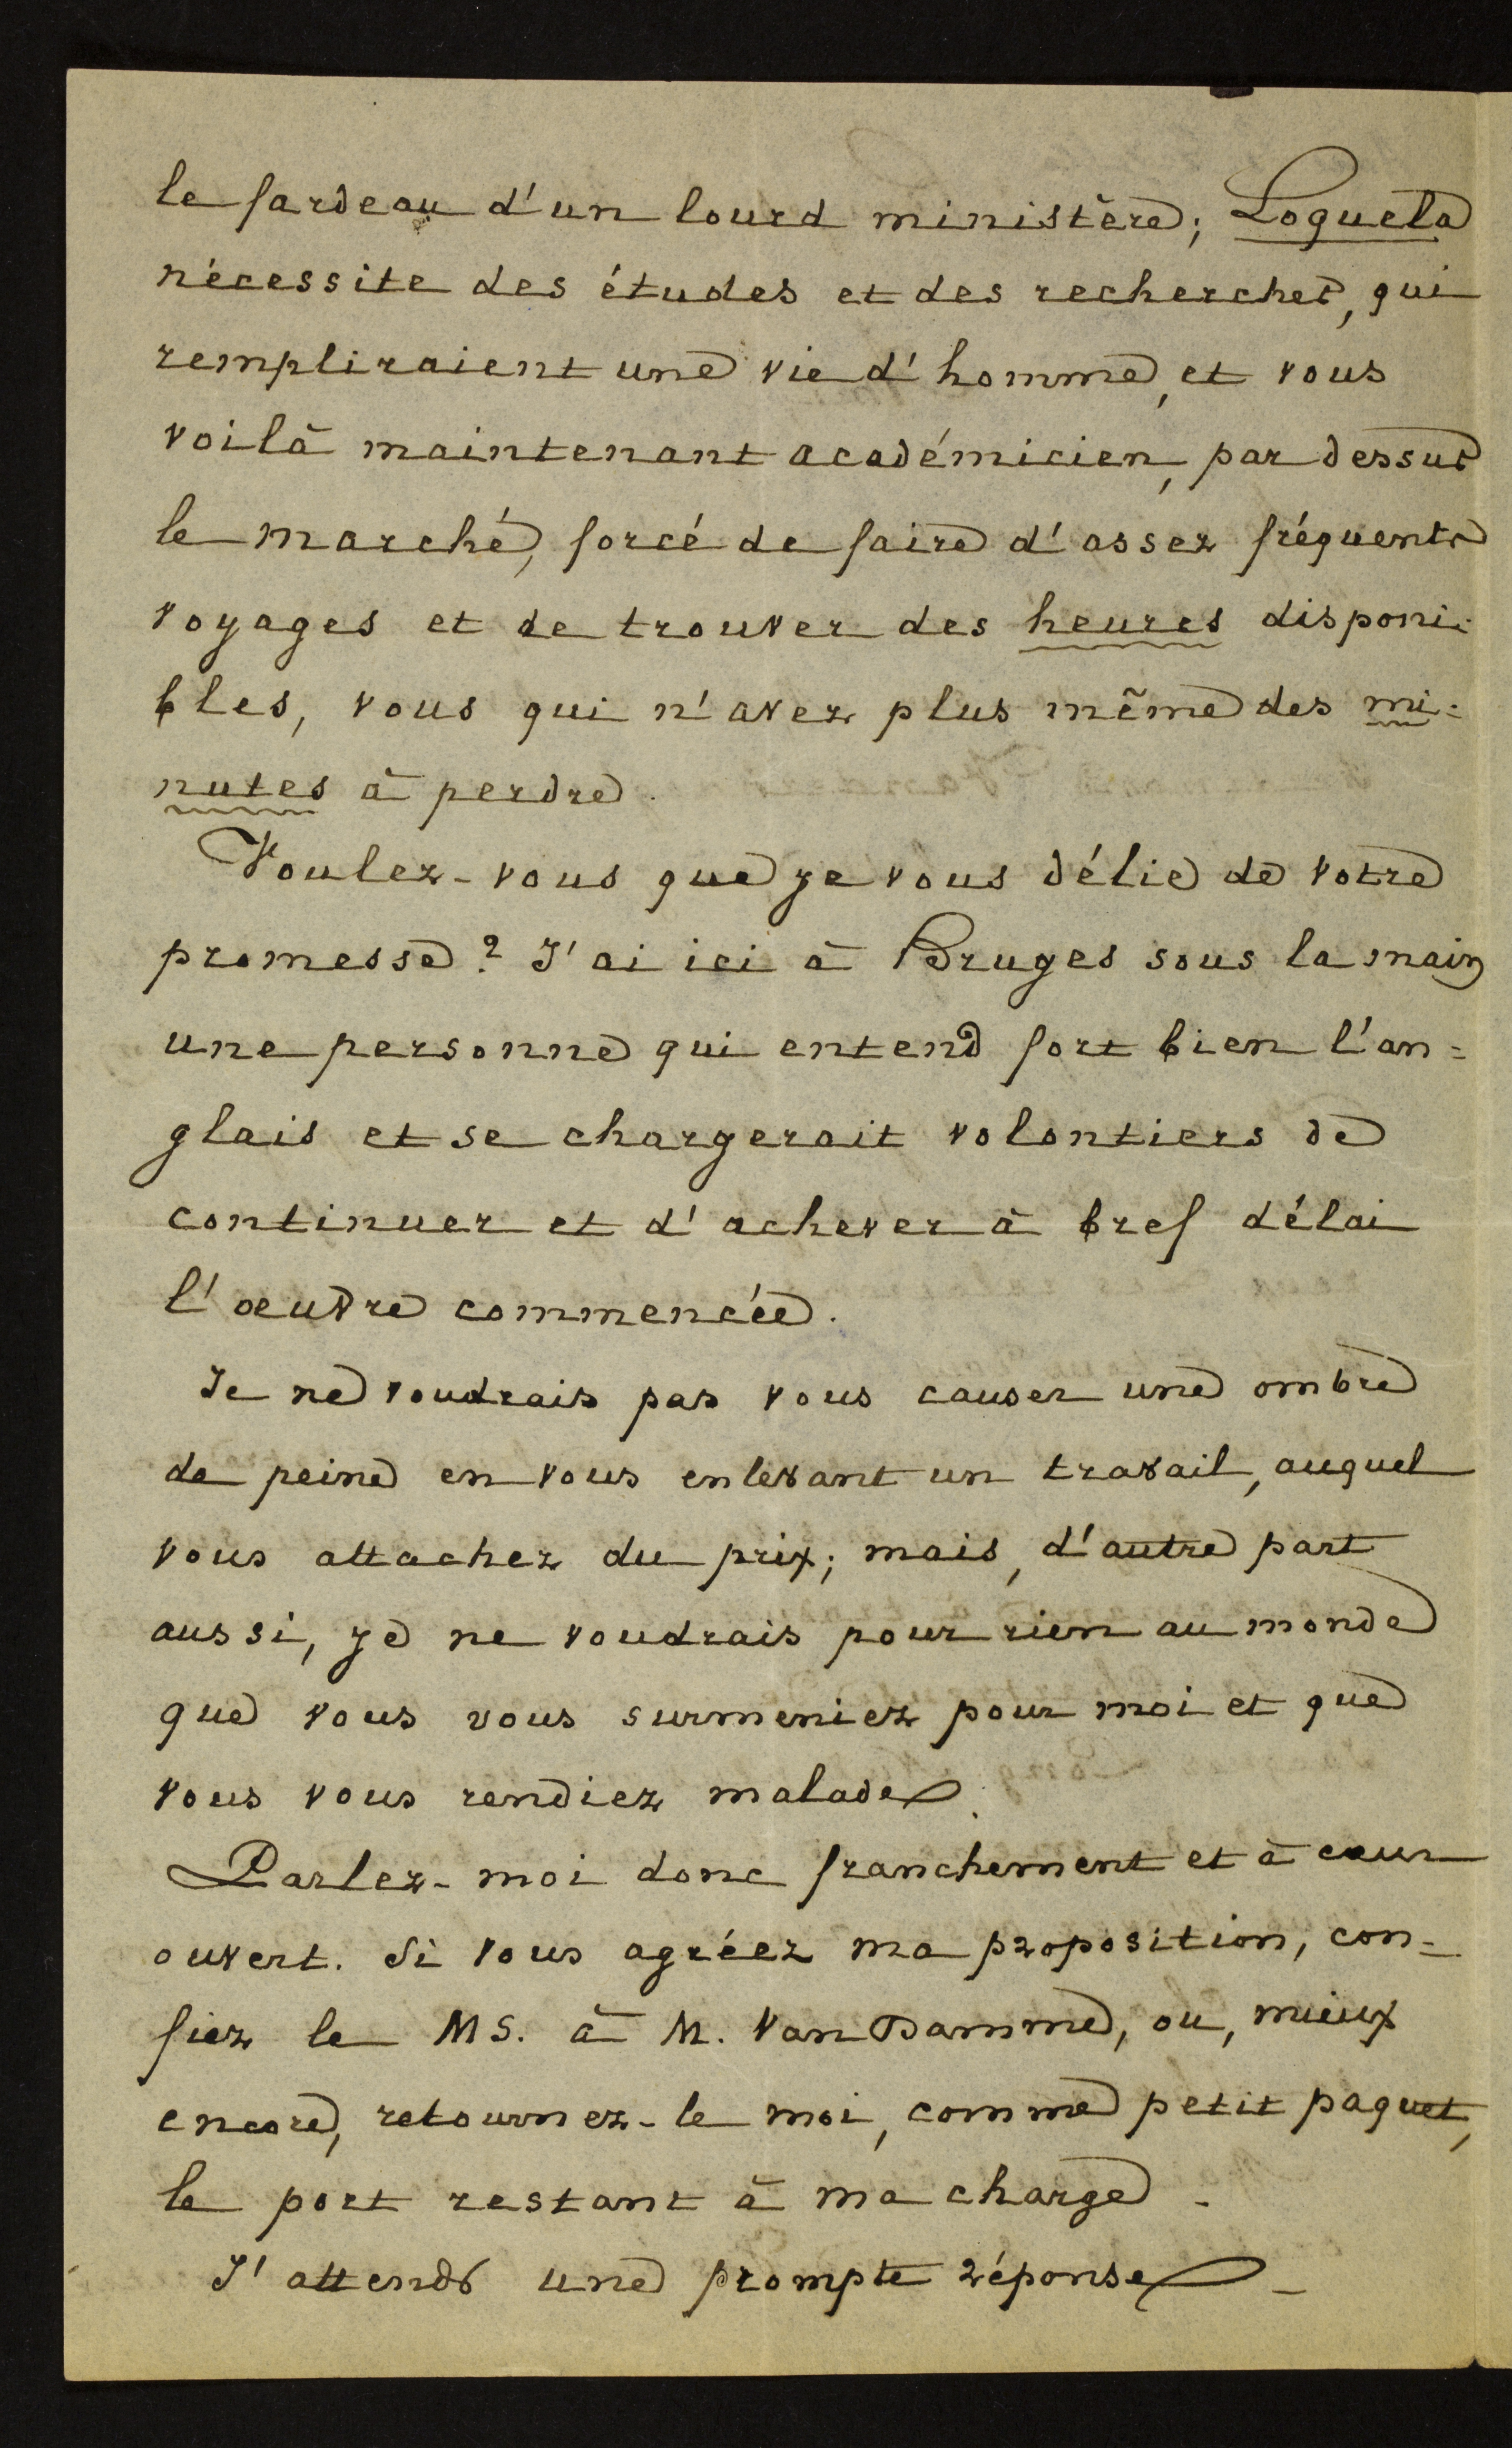 le fardeau d'un lourd ministère; Loquela
nécessite des études et des recherches, qui
rempliraient une vie d'homme, et vous
voilà maintenant académicien, par dessus
le marché, forcé de faire d'assez fréquents
voyages et de trouver des heures disponi-
bles, vous qui n'avez plus même des mi-
nutes à perdre.
Voulez-vous que je vous délie de votre
promesse? J'ai ici à Bruges sous la main
une personne qui entend fort bien l'an=
glais et se chargerait volontiers de
continuer et d'achever à bref délai
l'oeuvre commencée.
Je ne voudrais pas vous causer une ombre
de peine en vous enlevant un travail, auquel
vous attachez du prix; mais, d'autre part
aussi, je ne voudrais pour rien au monde
que vous vous surmeniez pour moi et que
vous vous rendiez malade.
Parlez-moi donc franchement et à cœur
ouvert. Si vous agréez ma proposition, con-
fiez le MS. à M. Van Damme, ou, mieux
encore, retournez-le moi, comme petit paquet,
le port restant à ma charge.
J'attends une prompte réponse_